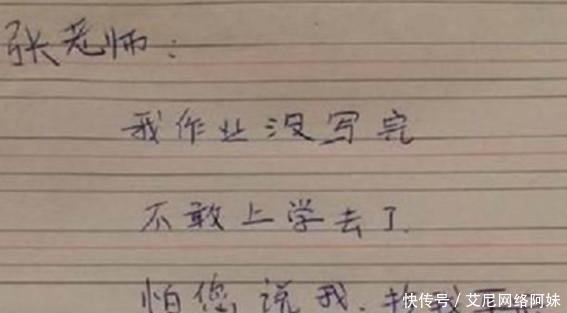 张老师：
我作业没写完
不敢上学去了.
怕您说我.
快传号／艾尼网络阿妹